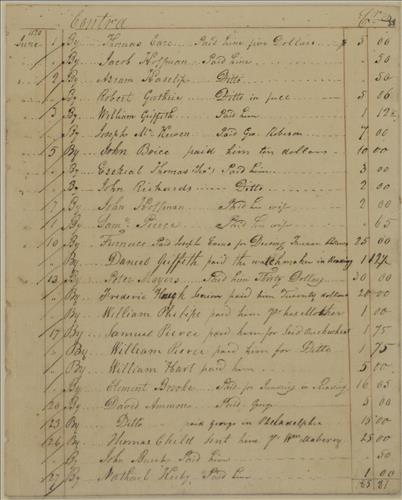 Contra Cr
1820
June 1 By Thomas Care Paid him five Dollars 5 00
" By Jacob Hoffman Paid him 50
2 By Abram Haslip Ditto 50
" By Robert Guthrie Ditto in full 5 06
3 By William Griffith Paid him 1 12½
" By Joseph McKewen Paid Geo. Roberson 7 00
5 By John Boice paid him ten dollars 10 00
" By Ezekial Thomas Paid him 3 00
" By John Richards Ditto 2 00
7 By John Hoffman Paid his wife 2 00
" By Saml Pierce Paid his wife 65
10 By Furnace Paid Joseph for 25 00
" By Daniel Griffith paid the watchmaker in Reading 1 12½
13 By Peter Moyers Paid him Thirty Dollars 30 00
" By Frederic Senior paid him Twenty dollars 20 00
" By William Philips paid him pr his Mother 1 00
17 By Samuel Pierce paid him for Buckwheat 1 75
" By William Pierce paid him for Ditto 1 75
" By William Hart paid him 5 00
" By Clement Brooke Paid for in Reading 16 63
20 By David Ammons Paid Georg 3 00
23 By Ditto paid george in Philadelphia 15 00
26 By Thomas Child Sent him pr Wm 25 00
" By John Paid him 50
27 By Nathael Paid him 1 00